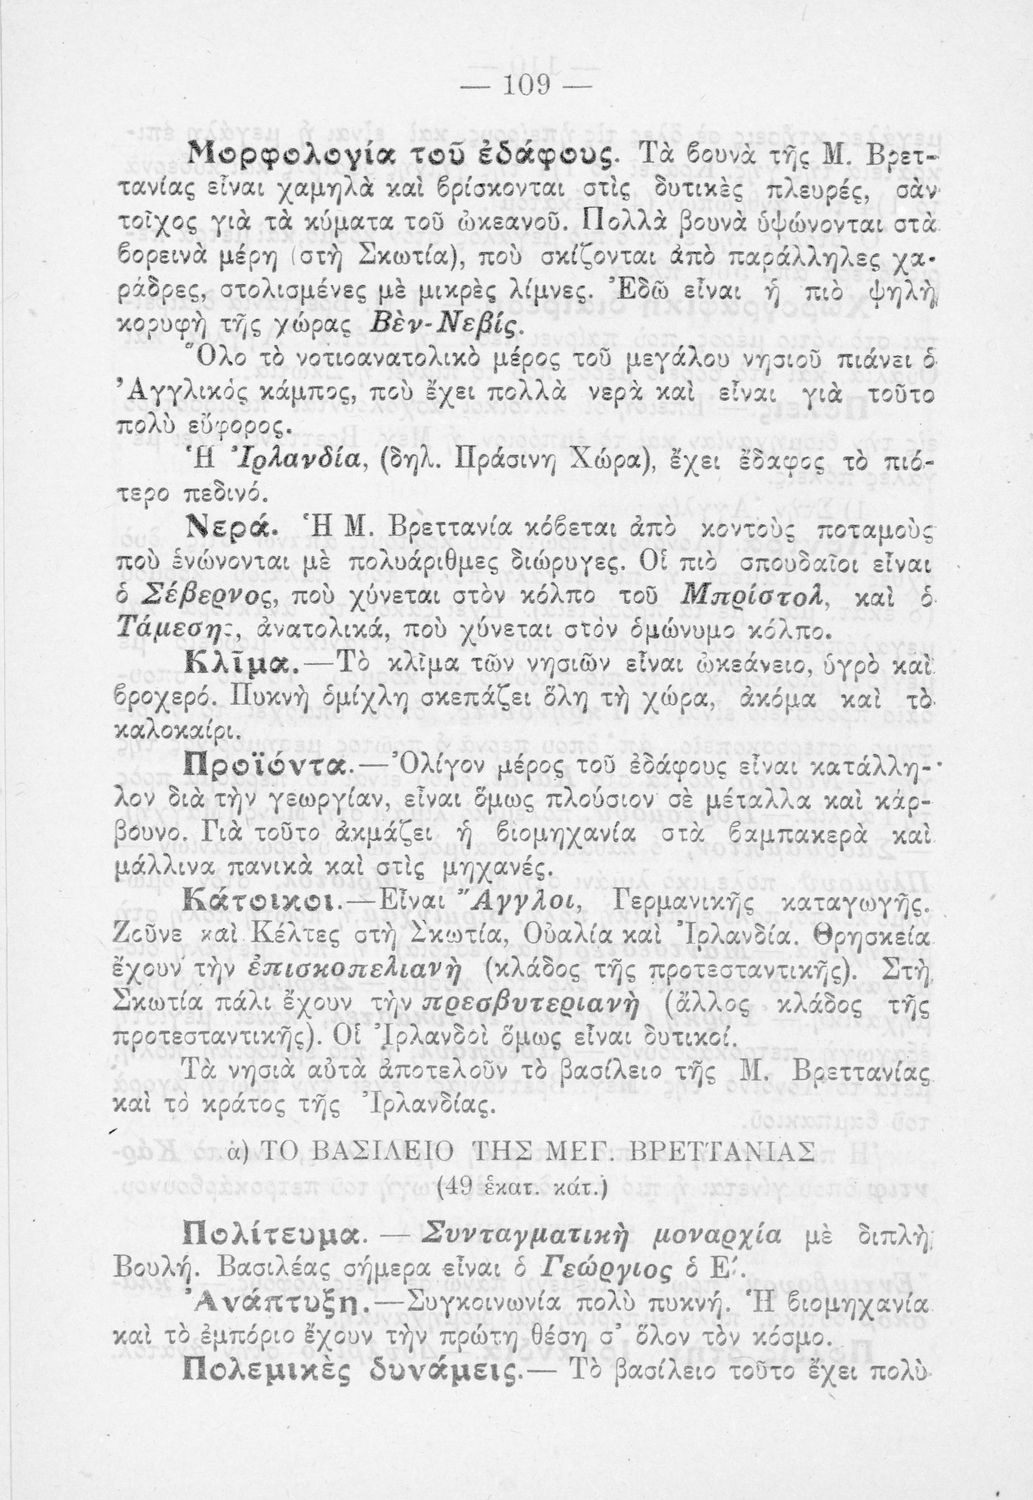 — 109 —
Μορφολογία τοῦ ἐδάφους. Τὰ βουνὰ τῆς Μ. Βρετ-
τανίας εἶναι χαμηλὰ καὶ βρίσκονται στὶς δυτικὲς πλευρές, σὰν
τοῖχος γιὰ τὰ κύματα τοῦ ὠκεανοῦ. Πολλὰ βουνὰ ὑψώνονται στὰ
βορεινὰ μέρη (στὴ Σκωτία), ποὺ σκίζονται ἀπὸ παράλληλες χα-
ράδρες, στολισμένες μὲ μικρὲς λίμνες. Ἐδῶ εἶναι ἡ πιὸ ψηλὴ
κορυφὴ τῆς χώρας Βὲν-Νεβίς.
Ὅλο τὸ νοτιοανατολικὸ μέρος τοῦ μεγάλου νησιοῦ πιάνει ὁ
Ἀγγλικός κάμπος, ποὺ ἔχει πολλὰ νερὰ καὶ εἶναι γιὰ τοῦτο
πολὺ εὔφορος.
Ἡ Ἰρλανδία, (δηλ. Πράσινη Χώρα), ἔχει ἔδαφος τὸ πιό-
τερο πεδινό.
Νερά. Ἡ Μ. Βρεττανία κόβεται ἀπὸ κοντοὺς ποταμοὺς
ποὺ ἑνώνονται μὲ πολυάριθμες διώρυγες. Οἱ πιὸ σπουδαῖοι εἶναι
ὁ Σέβερνος, ποὺ χύνεται στὸν κόλπο τοῦ Μπρίστολ, καὶ ὁ
Τάμεσης, ἀνατολικά, ποὺ χύνεται στὸν ὁμώνυμο κόλπο.
Κλῖμα.—Τὸ κλῖμα τῶν νησιῶν εἶναι ὠκεάνειο, ὑγρὸ καὶ
βροχερό. Πυκνὴ ὁμίχλη σκεπάζει ὅλη τὴ χώρα, ἀκόμα καὶ τὸ
καλοκαίρι.
Προϊόντα.—Ὀλίγον μέρος τοῦ ἐδάφους εἶναι κατάλλη-
λον διὰ τὴν γεωργίαν, εἶναι ὅμως πλούσιον σὲ μέταλλα καὶ κάρ-
βουνο. Γιὰ τοῦτο ἀκμάζει ἡ βιομηχανία στὰ βαμπακερὰ καὶ
μάλλινα πανικὰ καὶ στὶς μηχανές.
Κάτοικοι.—Εἶναι Ἄγγλοι, Γερμανικῆς καταγωγῆς.
Ζοῦνε καὶ Κέλτες στὴ Σκωτία, Οὐαλία καὶ Ἰρλανδία. Θρησκεία
ἔχουν τὴν ἐπισκοπελιανὴ (κλάδος τῆς προτεσταντικῆς). Στὴ
Σκωτία πάλι ἔχουν τὴν πρεσβυτεριανὴ (ἄλλος κλάδος τῆς
προτεσταντικῆς). Οἱ Ἰρλανδοὶ ὅμως εἶναι δυτικοί.
Τὰ νησιὰ αὐτὰ ἀποτελοῦν τὸ βασίλειο τῆς Μ. Βρεττανίας
καὶ τὸ κράτος τῆς Ἰρλανδίας.
ἀ) ΤΟ ΒΑΣΙΛΕΙΟ ΤΗΣ ΜΕΓ. ΒΡΕΤΤΑΝΙΑΣ
(49 ἑκατ. κάτ.)
Πολίτευμα. — Συνταγματικὴ μοναρχία μὲ διπλὴ
Βουλή. Βασιλέας σήμερα εἶναι ὁ Γεώργιος ὁ Ε΄.
Ἀνάπτυξη.—Συγκοινωνία πολὺ πυκνή. Ἡ βιομηχανία
καὶ τὸ ἐμπόριο ἔχουν τὴν πρώτη θέση σ᾿ ὅλον τὸν κόσμο.
Πολεμικὲς δυνάμεις.— Τὸ βασίλειο τοῦτο ἔχει πολὺ